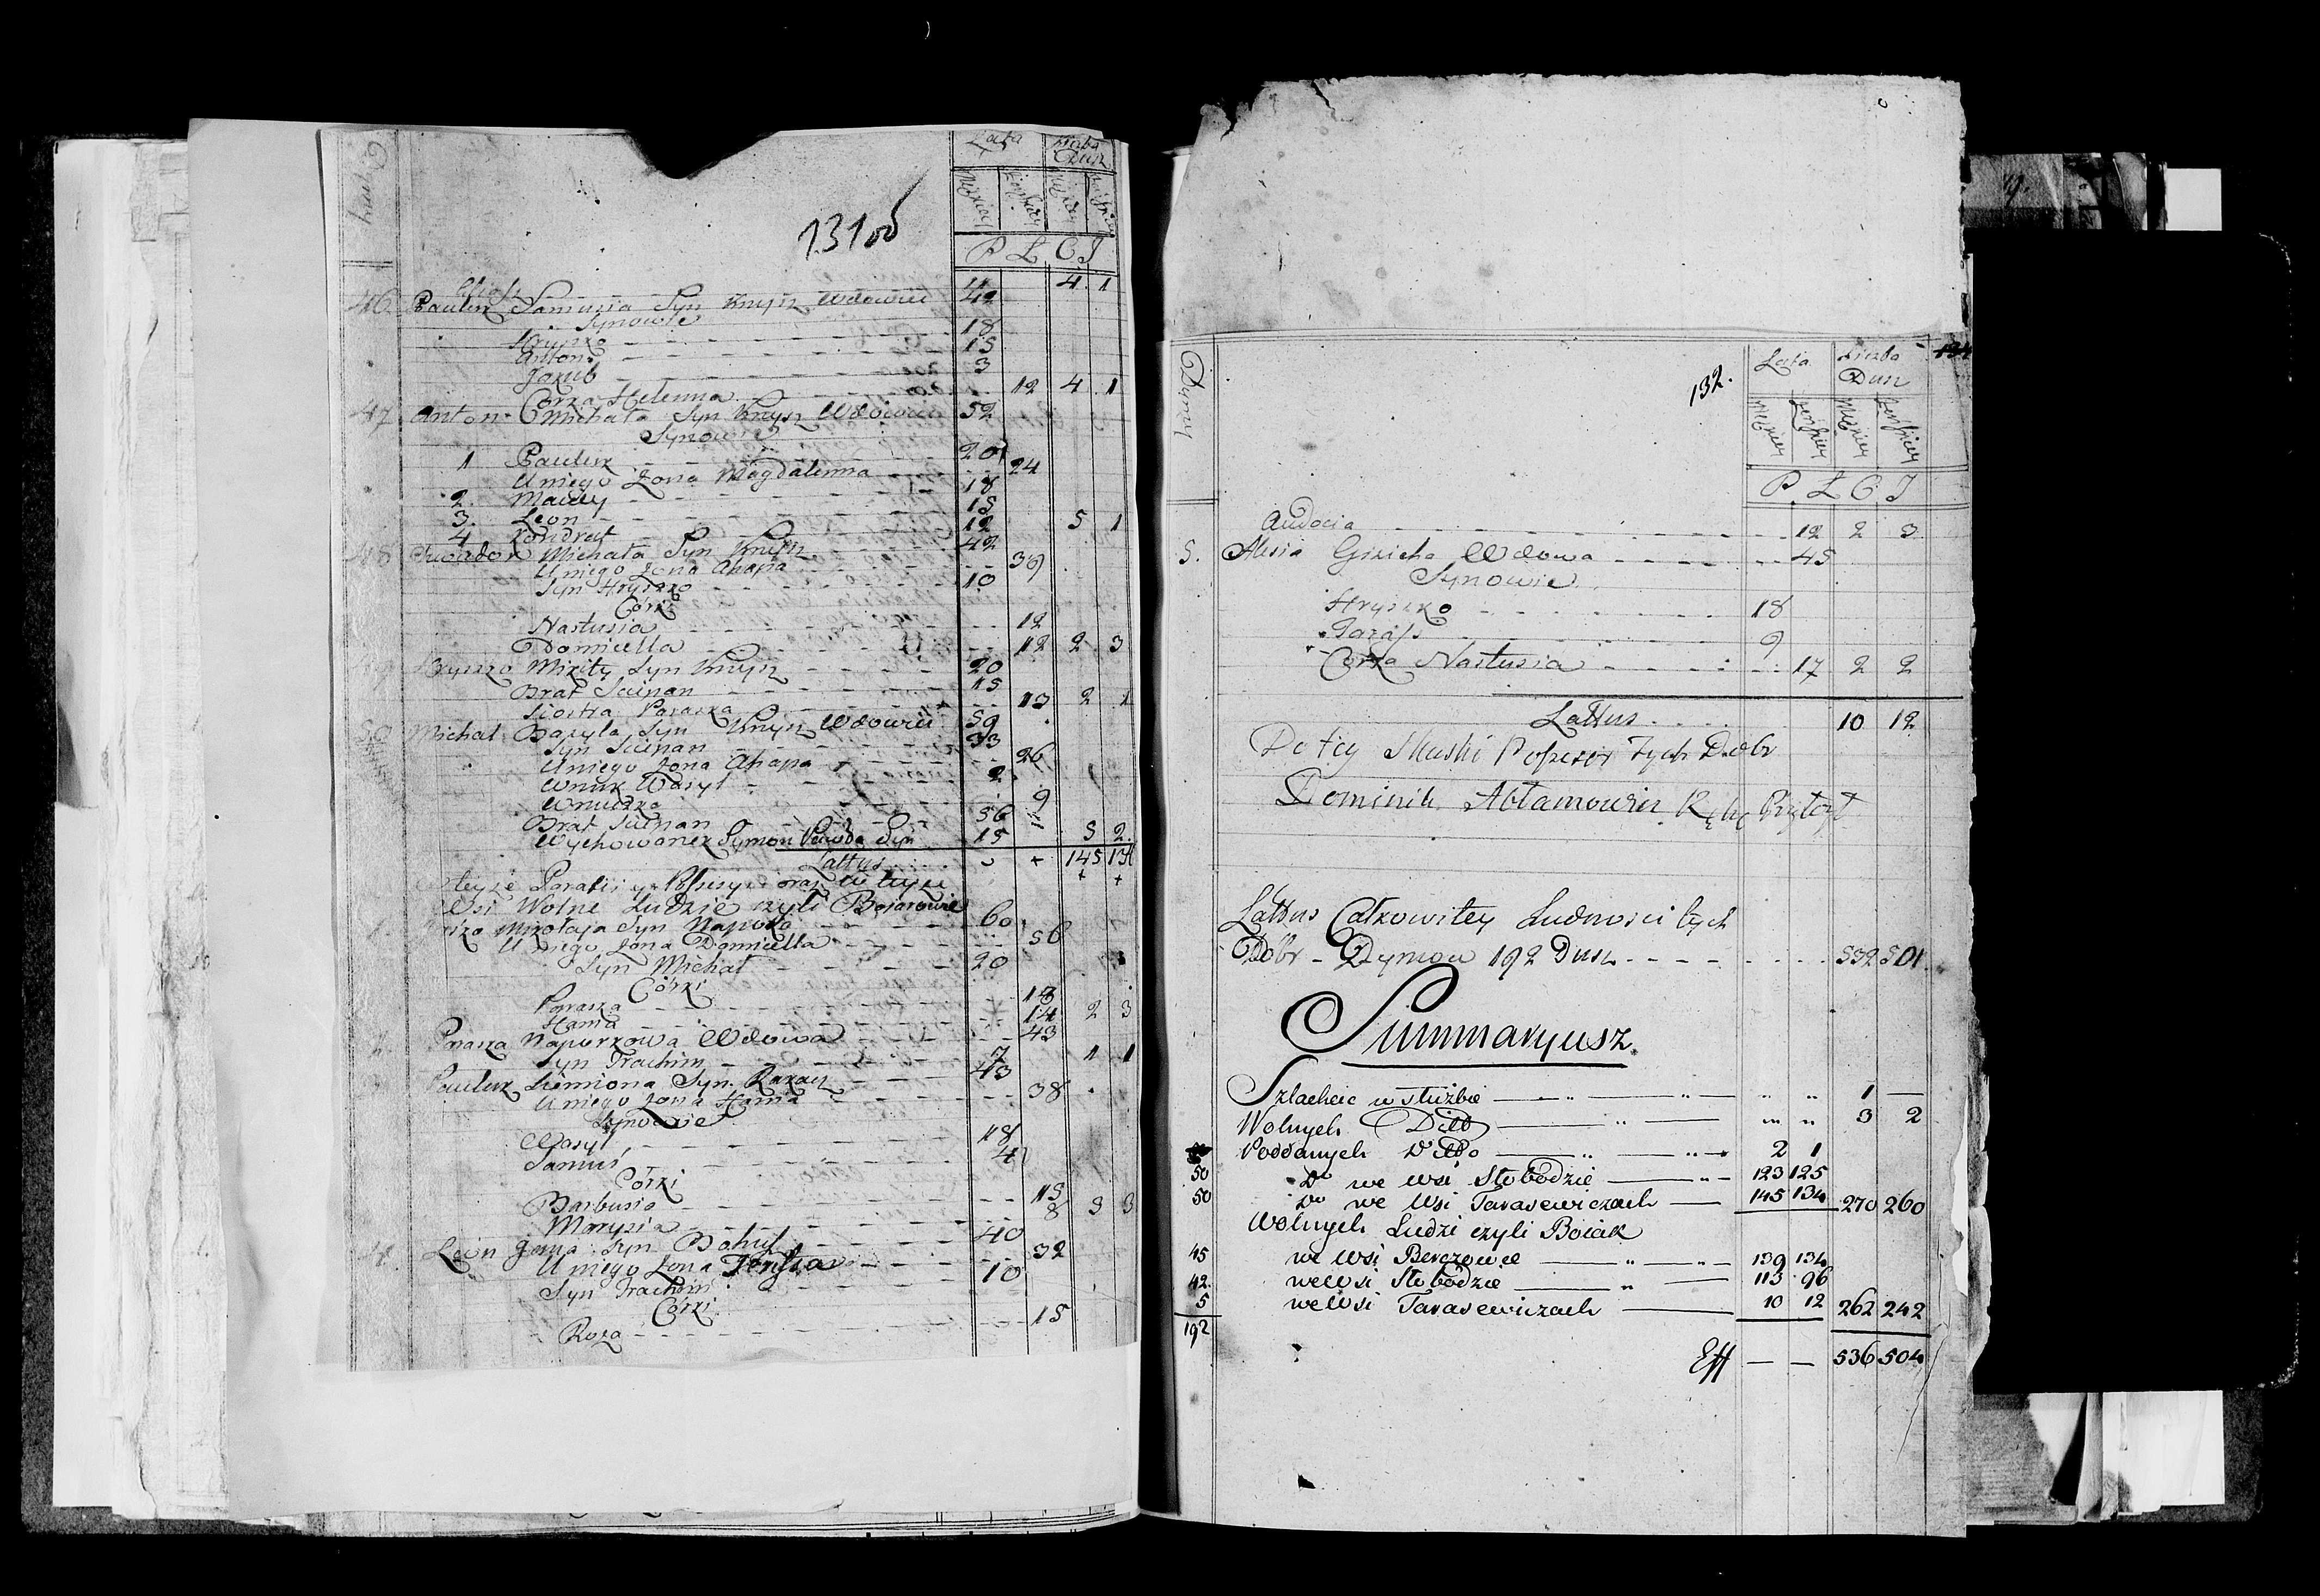 Dymy
Lata
Liczba Dusz
Męzkiey Żeńskiey Męzkiey Żeńskiey
131 об
P L C I
4 1
46 Paulux Samusia Syn Knysz Wdowiec 42
Synowie
Hryszko 18
Anton 15
Jakub 3
Corka Helenna 12 4 1
47 Anton Michała Syn Knysz Wdowiec 52
Synowie
1 Paulux 20
U niego Żona Magdalenna 24
2. Maciey 18
3. Leon 15
4 Kondrat 12 5 1
48 Michała Syn Knysz 42
U niego Żona Ahapa 39
Syn Hryszko 10
Córki
Nastusia 12
Domicella 12 2 3
Hryszko Mikity Syn Knysz 20
Brat Sciepan 15
Siostra Paraska 13 2 1
50 Michał Bazyla Syn Knysz Wdowiec 59
Syn Sciepan 33
U niego Żona Ahapa 26
Wnuk Wasyl 2
Wnuczka 9
Brat Sciepan 56
Wychowaniec Symon Syn 15 5 2
Lattus 145 134
Wsi Wolne Ludzie czyli Bojarowie
1. Mikołaja Syn 60
U niego Żona Domicella 56
Syn Michał 20
Córki
Paraska 18
Hanna 14 2 3
2. Paraska Wdowa 43
Syn Trachim 7 1 1
Paulux Siemiona Syn 43
U niego Żona Hanna 38
Synowie
Wasyl 18
Samuś 4
Córki
Barbusia 15
Marysia 8 3 3
4. Leon Syn Bohusz 40
U niego Żona 32
Syn Trachim 10
Córki
Roza 15
Dymy
132.
Lata
Liczba Dusz
Męzkiey Żeńskiey Męzkiey Żeńskiey
P. L C I
Audocia 12 2 3
5. Alesia Gizicha Wdowa 45
Synowie
Hryszko 18
Taraś 9
Corka Nastusia 17 2 2
Lattus 10 12
Do tey Skaski Possesor tych Dobr
Dominik Abłamowicz
Lattus Całkowitey Ludności tych
Dobr - Dymow 192 Dusz 532 501
Summaryusz.
Szlachcic w służbie 1 —
Wolnych Ditto 3 2
Poddanych Ditto 2 1
50 Do we wsi Słobodzie 123 125
50 Do we Wsi Tarasewiczach 145 134 270 260
Wolnych Ludzi czyli Boiar
45 we Wsi Berczowce 139 134
42. we Wsi Słobodzie 113 96
5 we Wsi Tarasewiczach 10 12 262 242
192
Eff — — 536 504